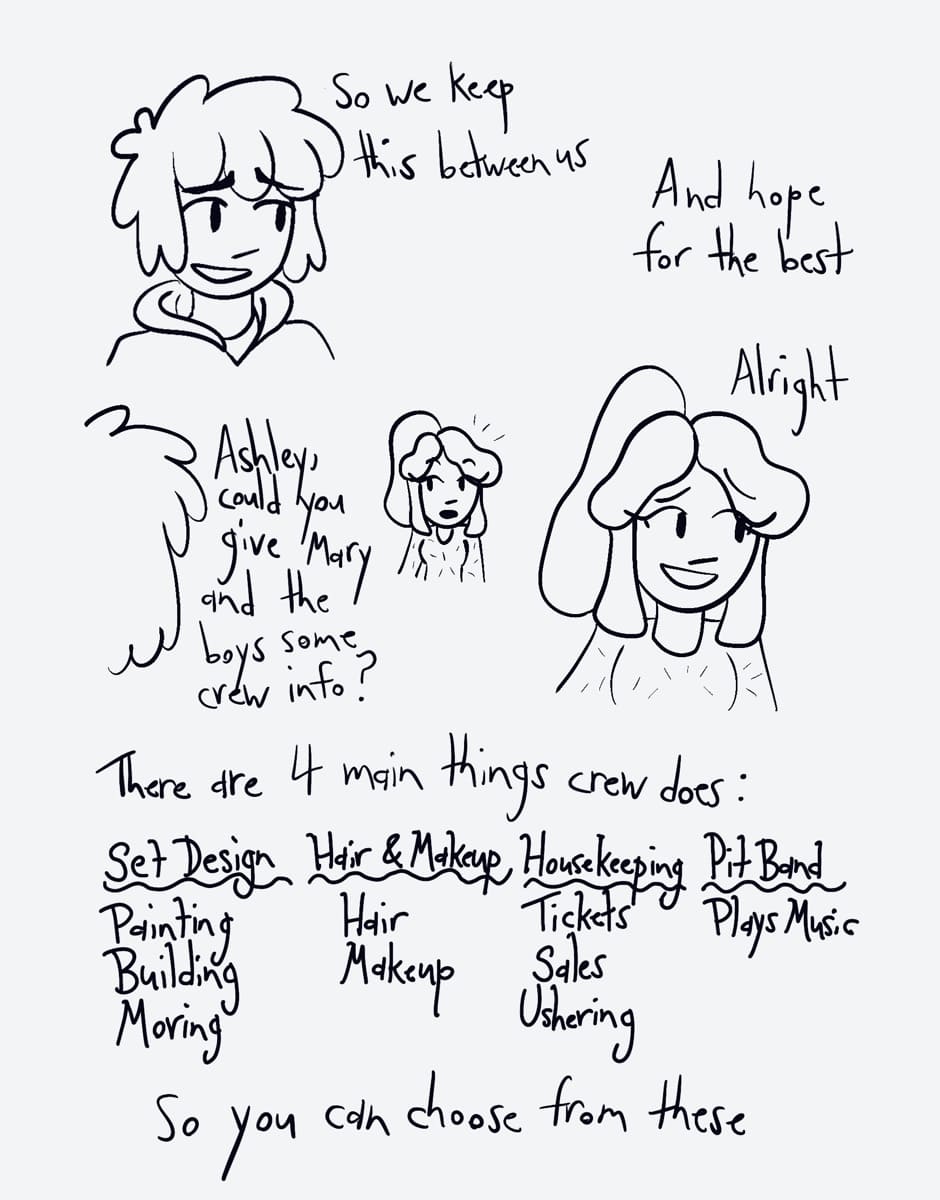 So we keep
this between us
And hope
for the best
Alright
Ashley,
could you
give Mary
and the
boys some
crew info?
There are 4 main things crew does:
Set Design Hair & Makeup Housekeeping Pit Band
Painting Hair Tickets Plays Music
Building Makeup Sales
Moving Ushering
So you can choose from these